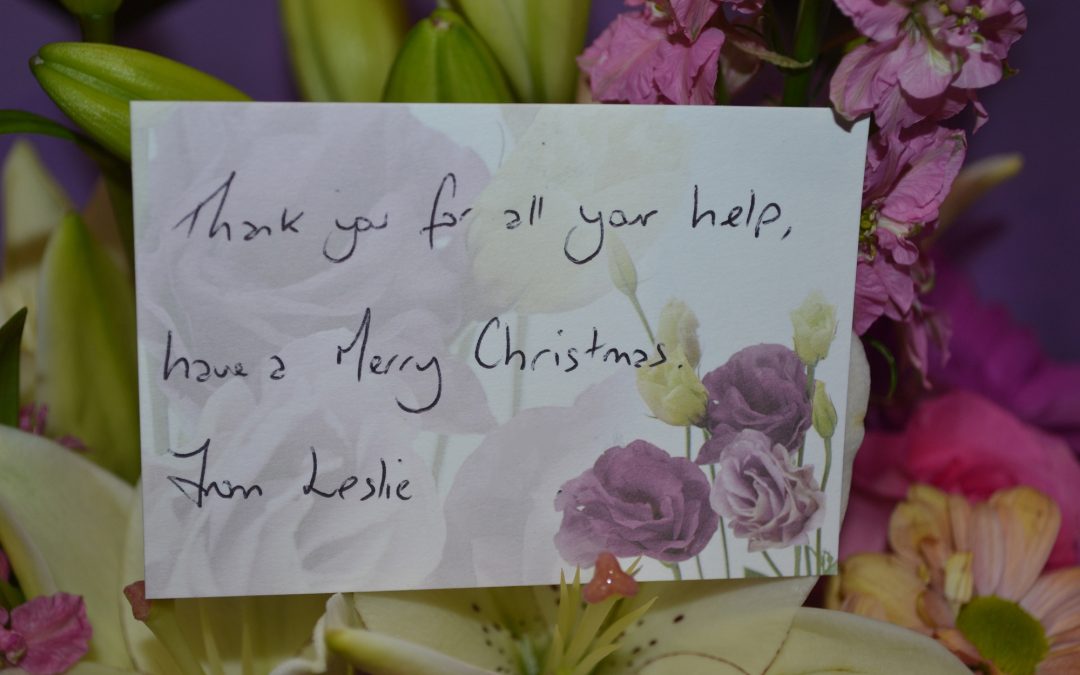 Thank you for all your help,
have a Merry Christmas.
From Leslie